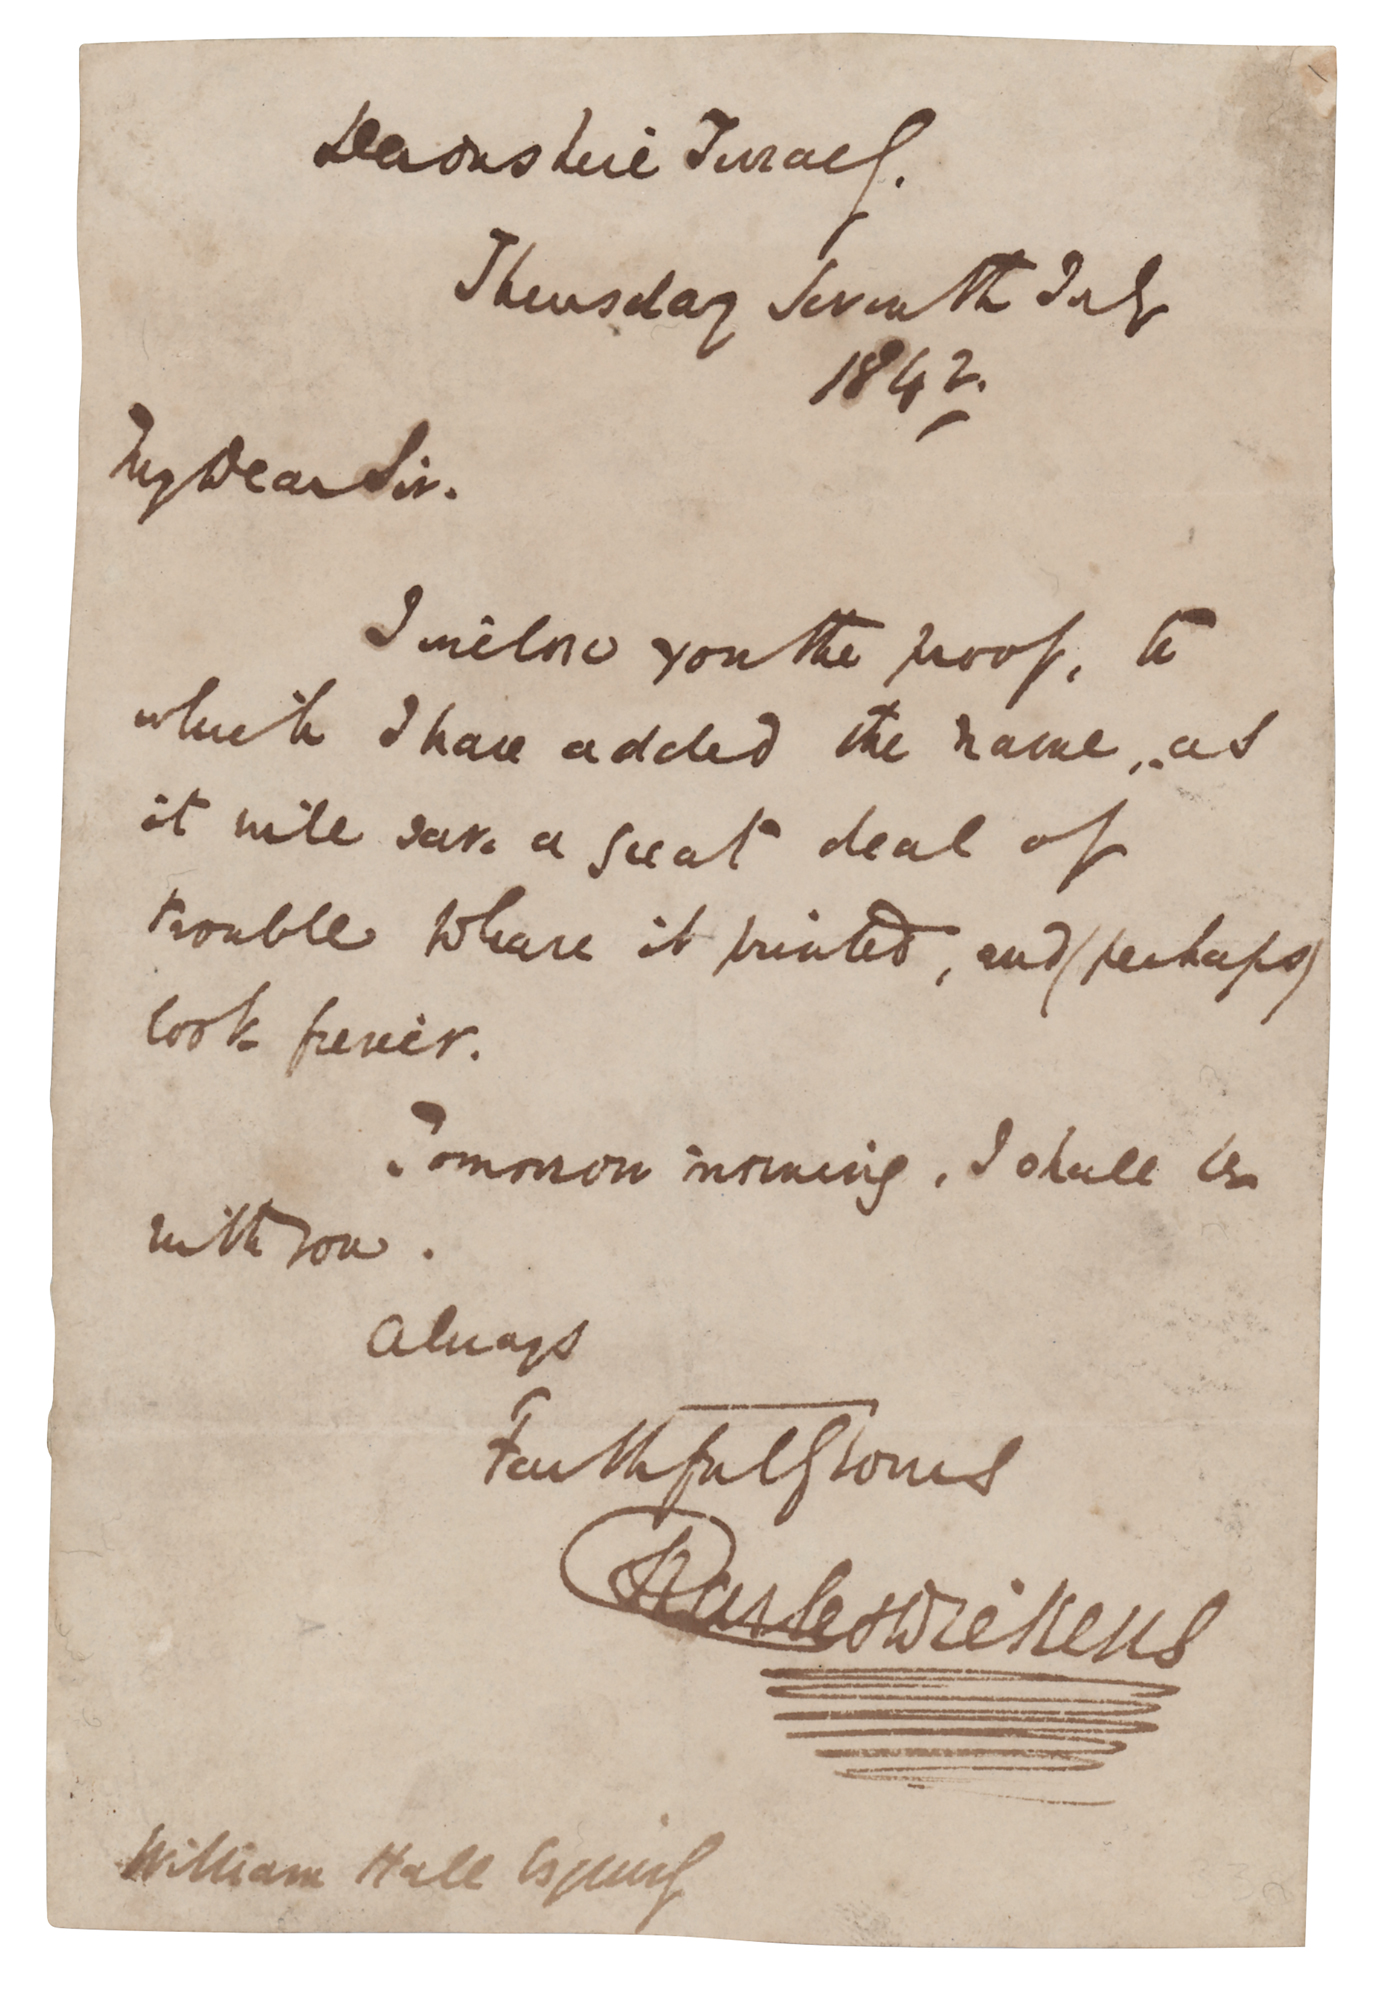 Devonshire Terrace.
Thursday Seventh July
1842.
My Dear Sir.
I inclose you the proof, to
which I have added the name, as
it will save a great deal of
trouble to have it printed, and (perhaps)
look freer.
Tomorrow morning, I shall be
with you.
Always
Faithfully Yours
Charles Dickens
William Hall Esquire